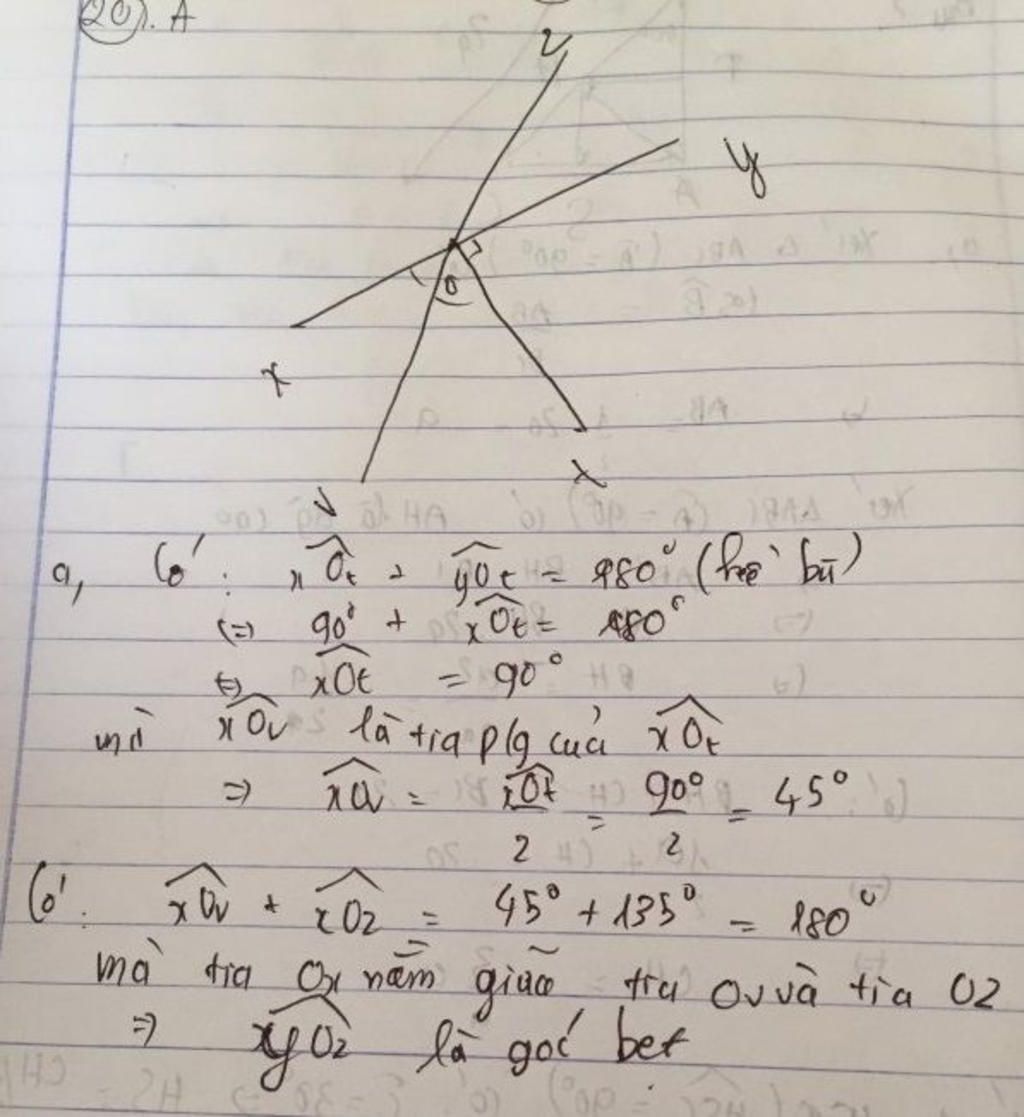 20). A
z
y
O
x
v
x
a, Có: xOt + yOt = 180° (kề bù)
(=) 90° + xOt = 180°
(=) xOt = 90°
mà xOv là tia p/g cuả xOt
=> xOv = xOt/2 = 90°/2 = 45°
Có: xOv + xOz = 45° + 135° = 180°
mà tia Ox nằm giữa tia Ov và tia Oz
=> xyOz là góc bet